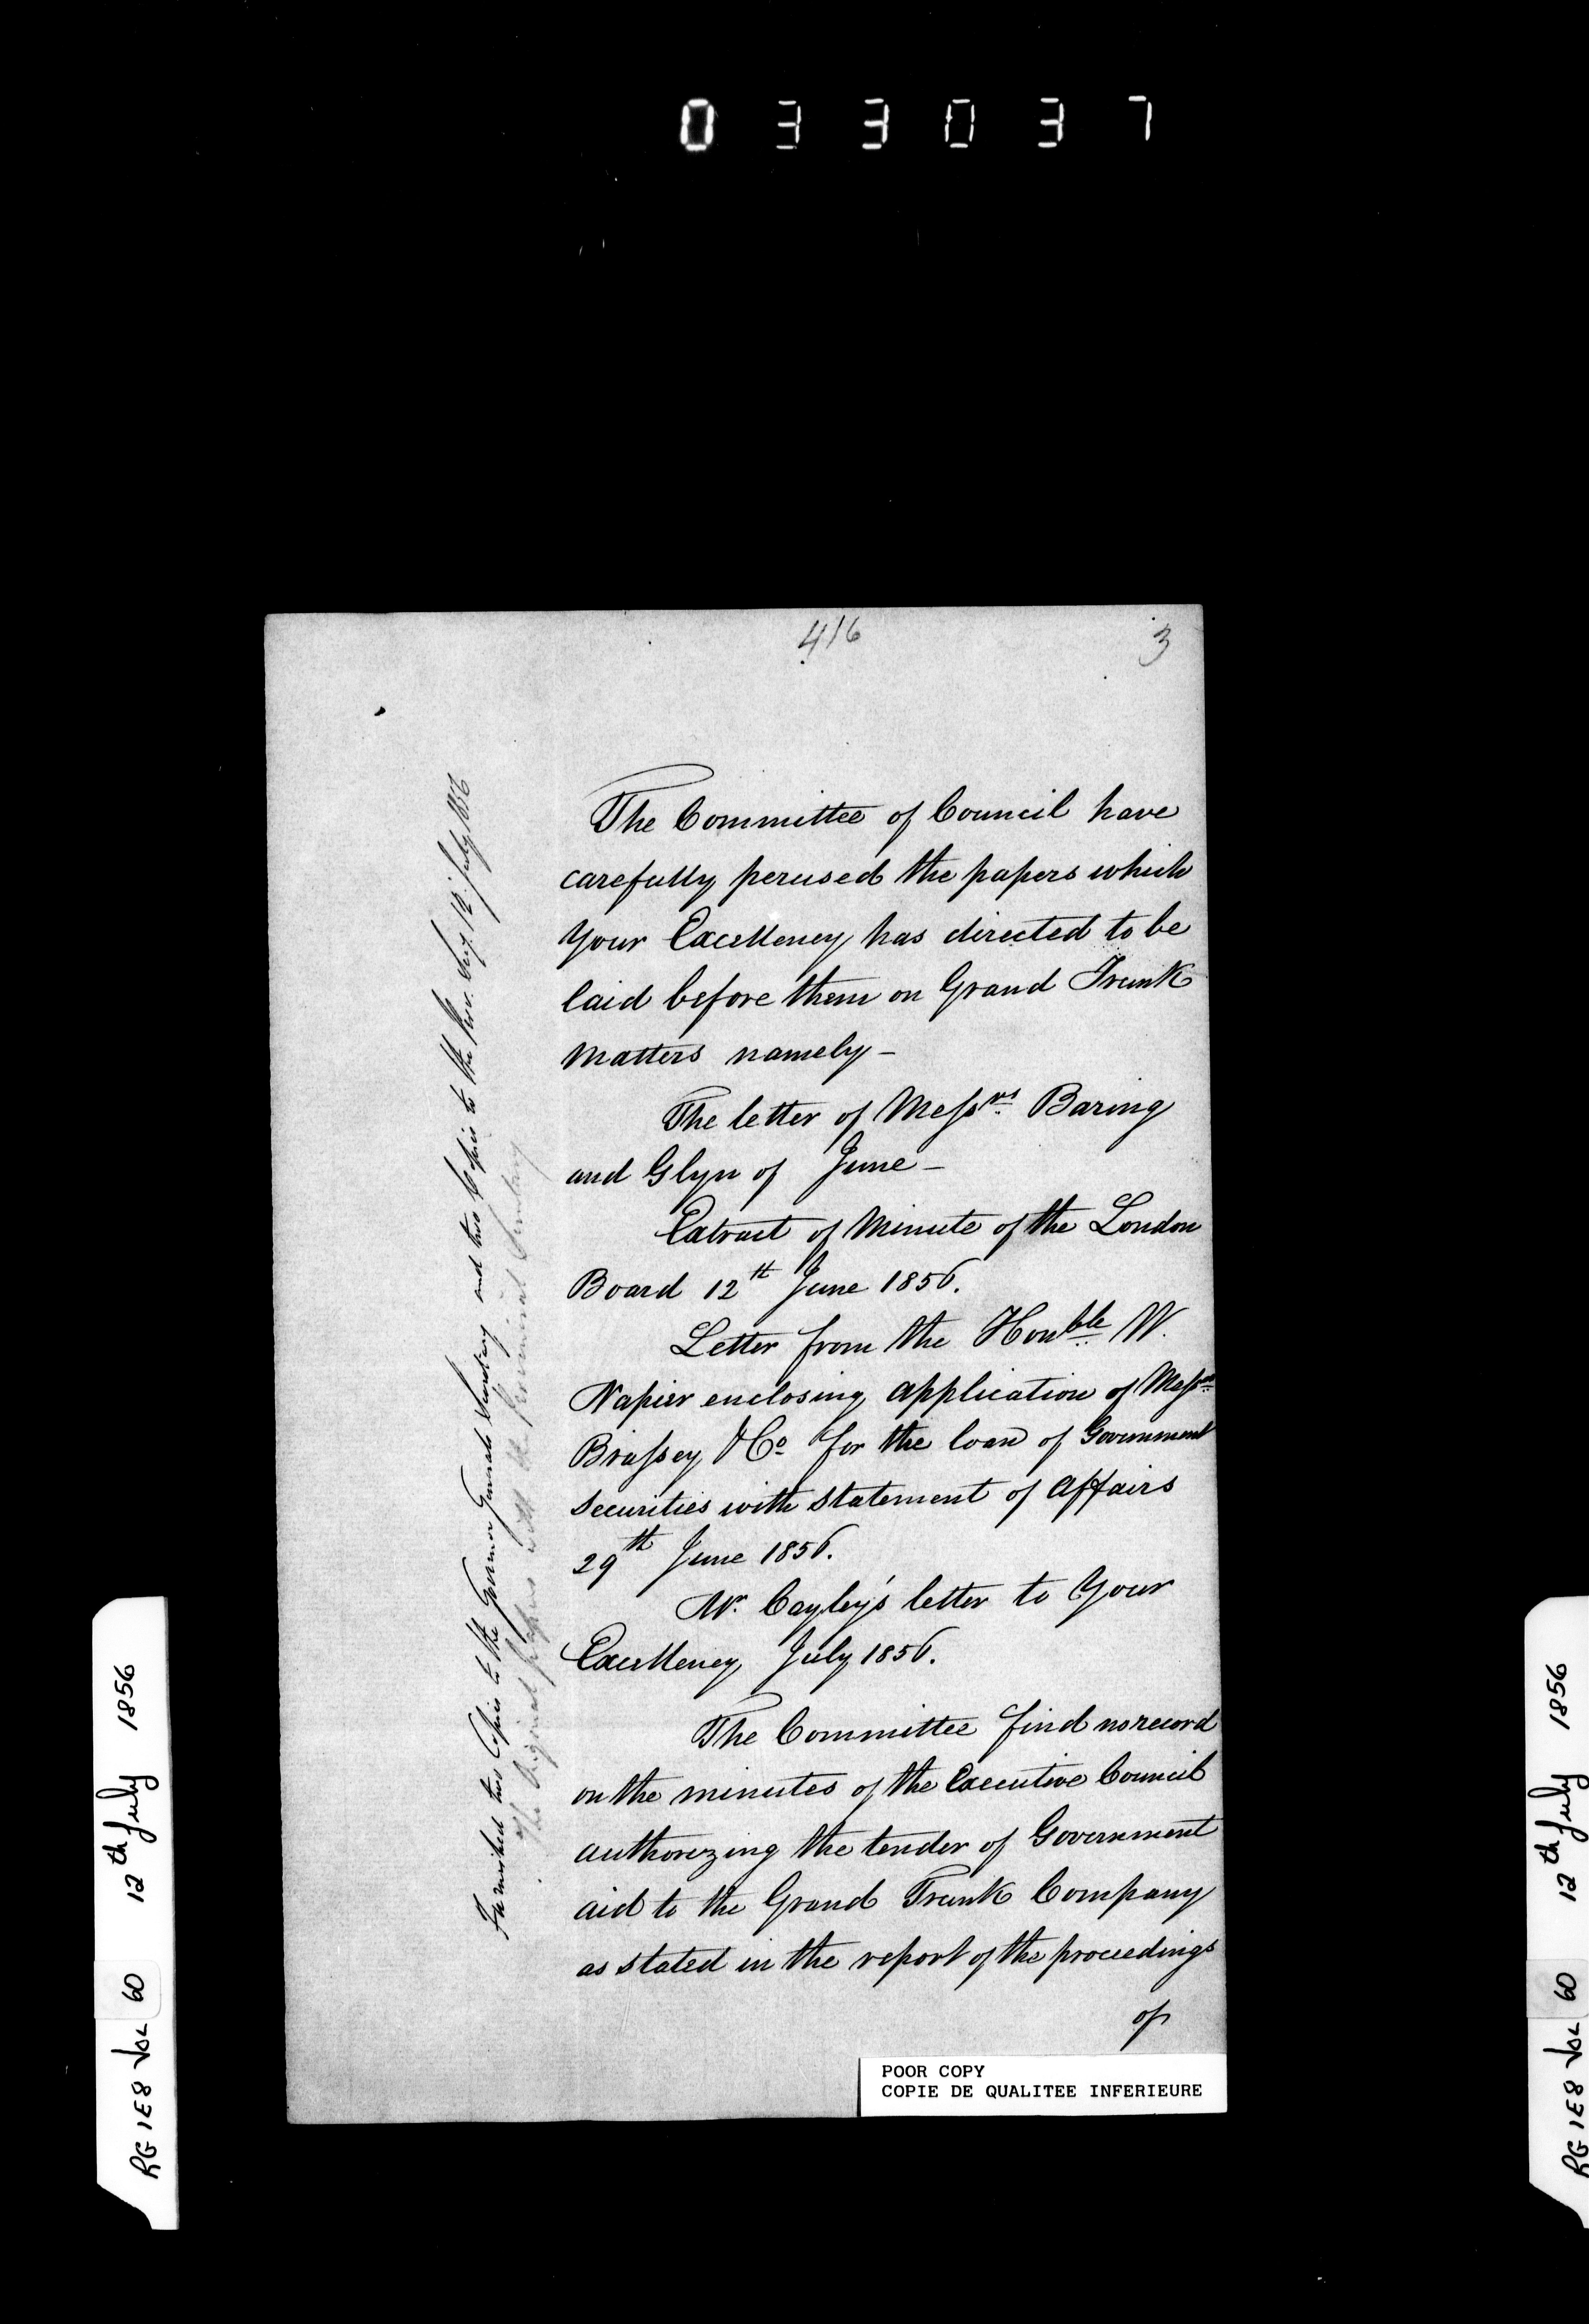 033037
416
3
The Committee of Council have
carefully perused the papers which
Your Excellency has directed to be
laid before them on Grand Trunk
Matters namely –
The letter of Messrs Baring
and Glyn of June –
Extract of Minute of the London
Board 12th June 1856.
Letter from the Honble W.
Napier enclosing application of Messrs
Brassey & Co for the loan of Government
Securities with Statement of Affairs
29th June 1856.
Mr. Cayley's letter to Your
Excellency July 1856.
The Committee find no record
on the minutes of the Executive Council
authorizing the tender of Government
aid to the Grand Trunk Company
as stated in the report of the proceedings
of
Furnished two Copies to the Governor Generals Secretary and two Copies to the Prov. Secy. 12 July 1856
The Original papers with the Provincial Secretary
POOR COPY
COPIE DE QUALITEE INFERIEURE
RG 1E8 VOL 60 12th July 1856
RG 1E8 VOL 60 12th July 1856